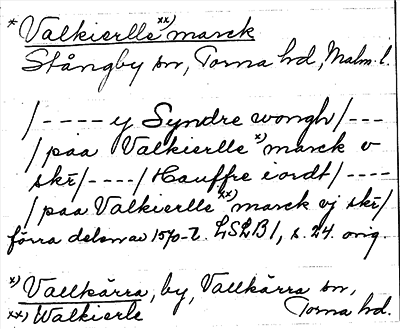 * Valkierlle xx) marck
Stångby sn, Torna hd, Malm. l.
/ - - - - y Syndre wongh / - - -
/ paa Valkierlle x) marck v
skr̄ / - - - - / Hauffre iordt / - - - -
/ paa Valkierlle xx) marck vj skr̄ /
förra delen av 1570-t. LSLB 1, s. 24. orig.
x) Vallkärra, by, Vallkärra sn,
xx) Walkierle Torna hd.